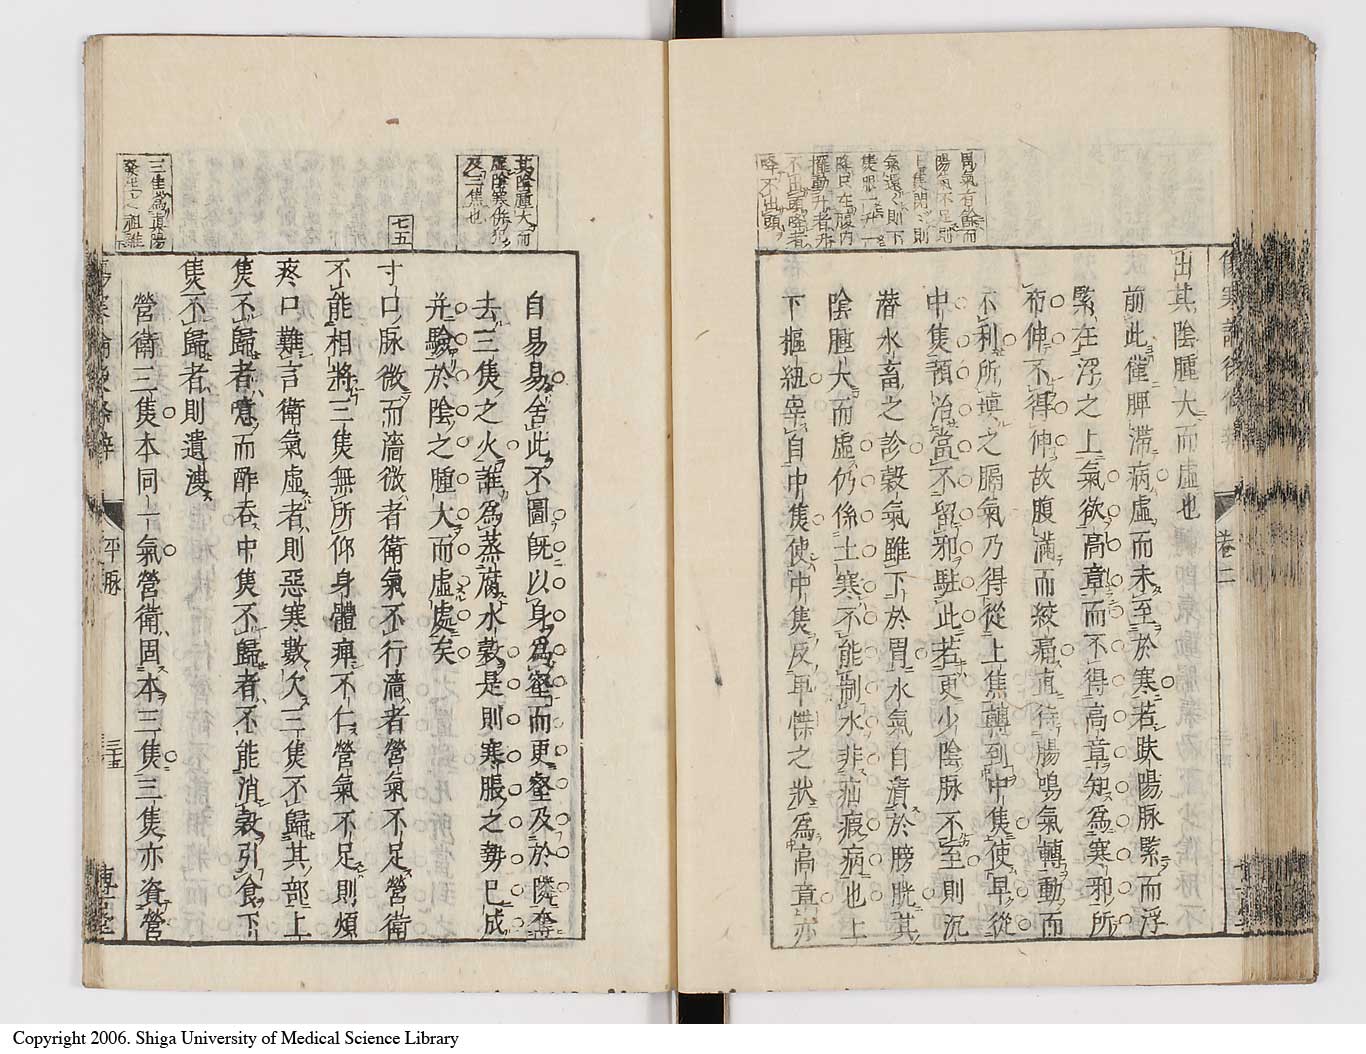 胃氣有餘而
陽氣不足則
上隻閉々則
氣還々則下
隻眼一升一
降只在腹內
擺動升者升
不出頭降者
降不出頭
出其陰腫大而虛也
前此僅脾滯病虛而未至於寒若趺陽脉緊而浮
緊在浮之上氣欲高章而不得高章知爲寒邪所
布伸不得伸故腹滿而絞痛直待腸鳴氣轉動而
不利所塡之膈氣乃得從上焦轉到中隻使早從
中隻預治當不留邪駐此若更少陰脉不至則沉
潛水畜之診穀氣雖下於胃水氣自漬於膀胱其
陰腫大而虛仍係土寒不能制水非疝瘕病也上
下樞紐寀自中隻使中隻反早傑之狀爲高章亦
卷二
其陰腫大而
虛陰寒併犯
及三焦也
七五
三隻爲眞陽
發生之祖誰
自易易舍此不圖旣以身爲壑而更壑及於隣奪
去三隻之火誰爲蒸腐水榖是則寒脹之勢已成
并驗於陰之腫大而虛處矣
寸口脉微而濇微者衛氣不行濇者營氣不足營衛
不能相將三隻無所仰身體痺不仁營氣不足則煩
疼口難言衛氣虛者則惡寒數欠三隻不歸其部上
隻不歸者噫而酢吞中隻不歸者不能消榖引食下
隻不歸者則遺溲
營衛三隻本同一氣營衛固本三隻三隻亦資營
平脉
三十五
博古堂
Copyright 2006. Shiga University of Medical Science Library